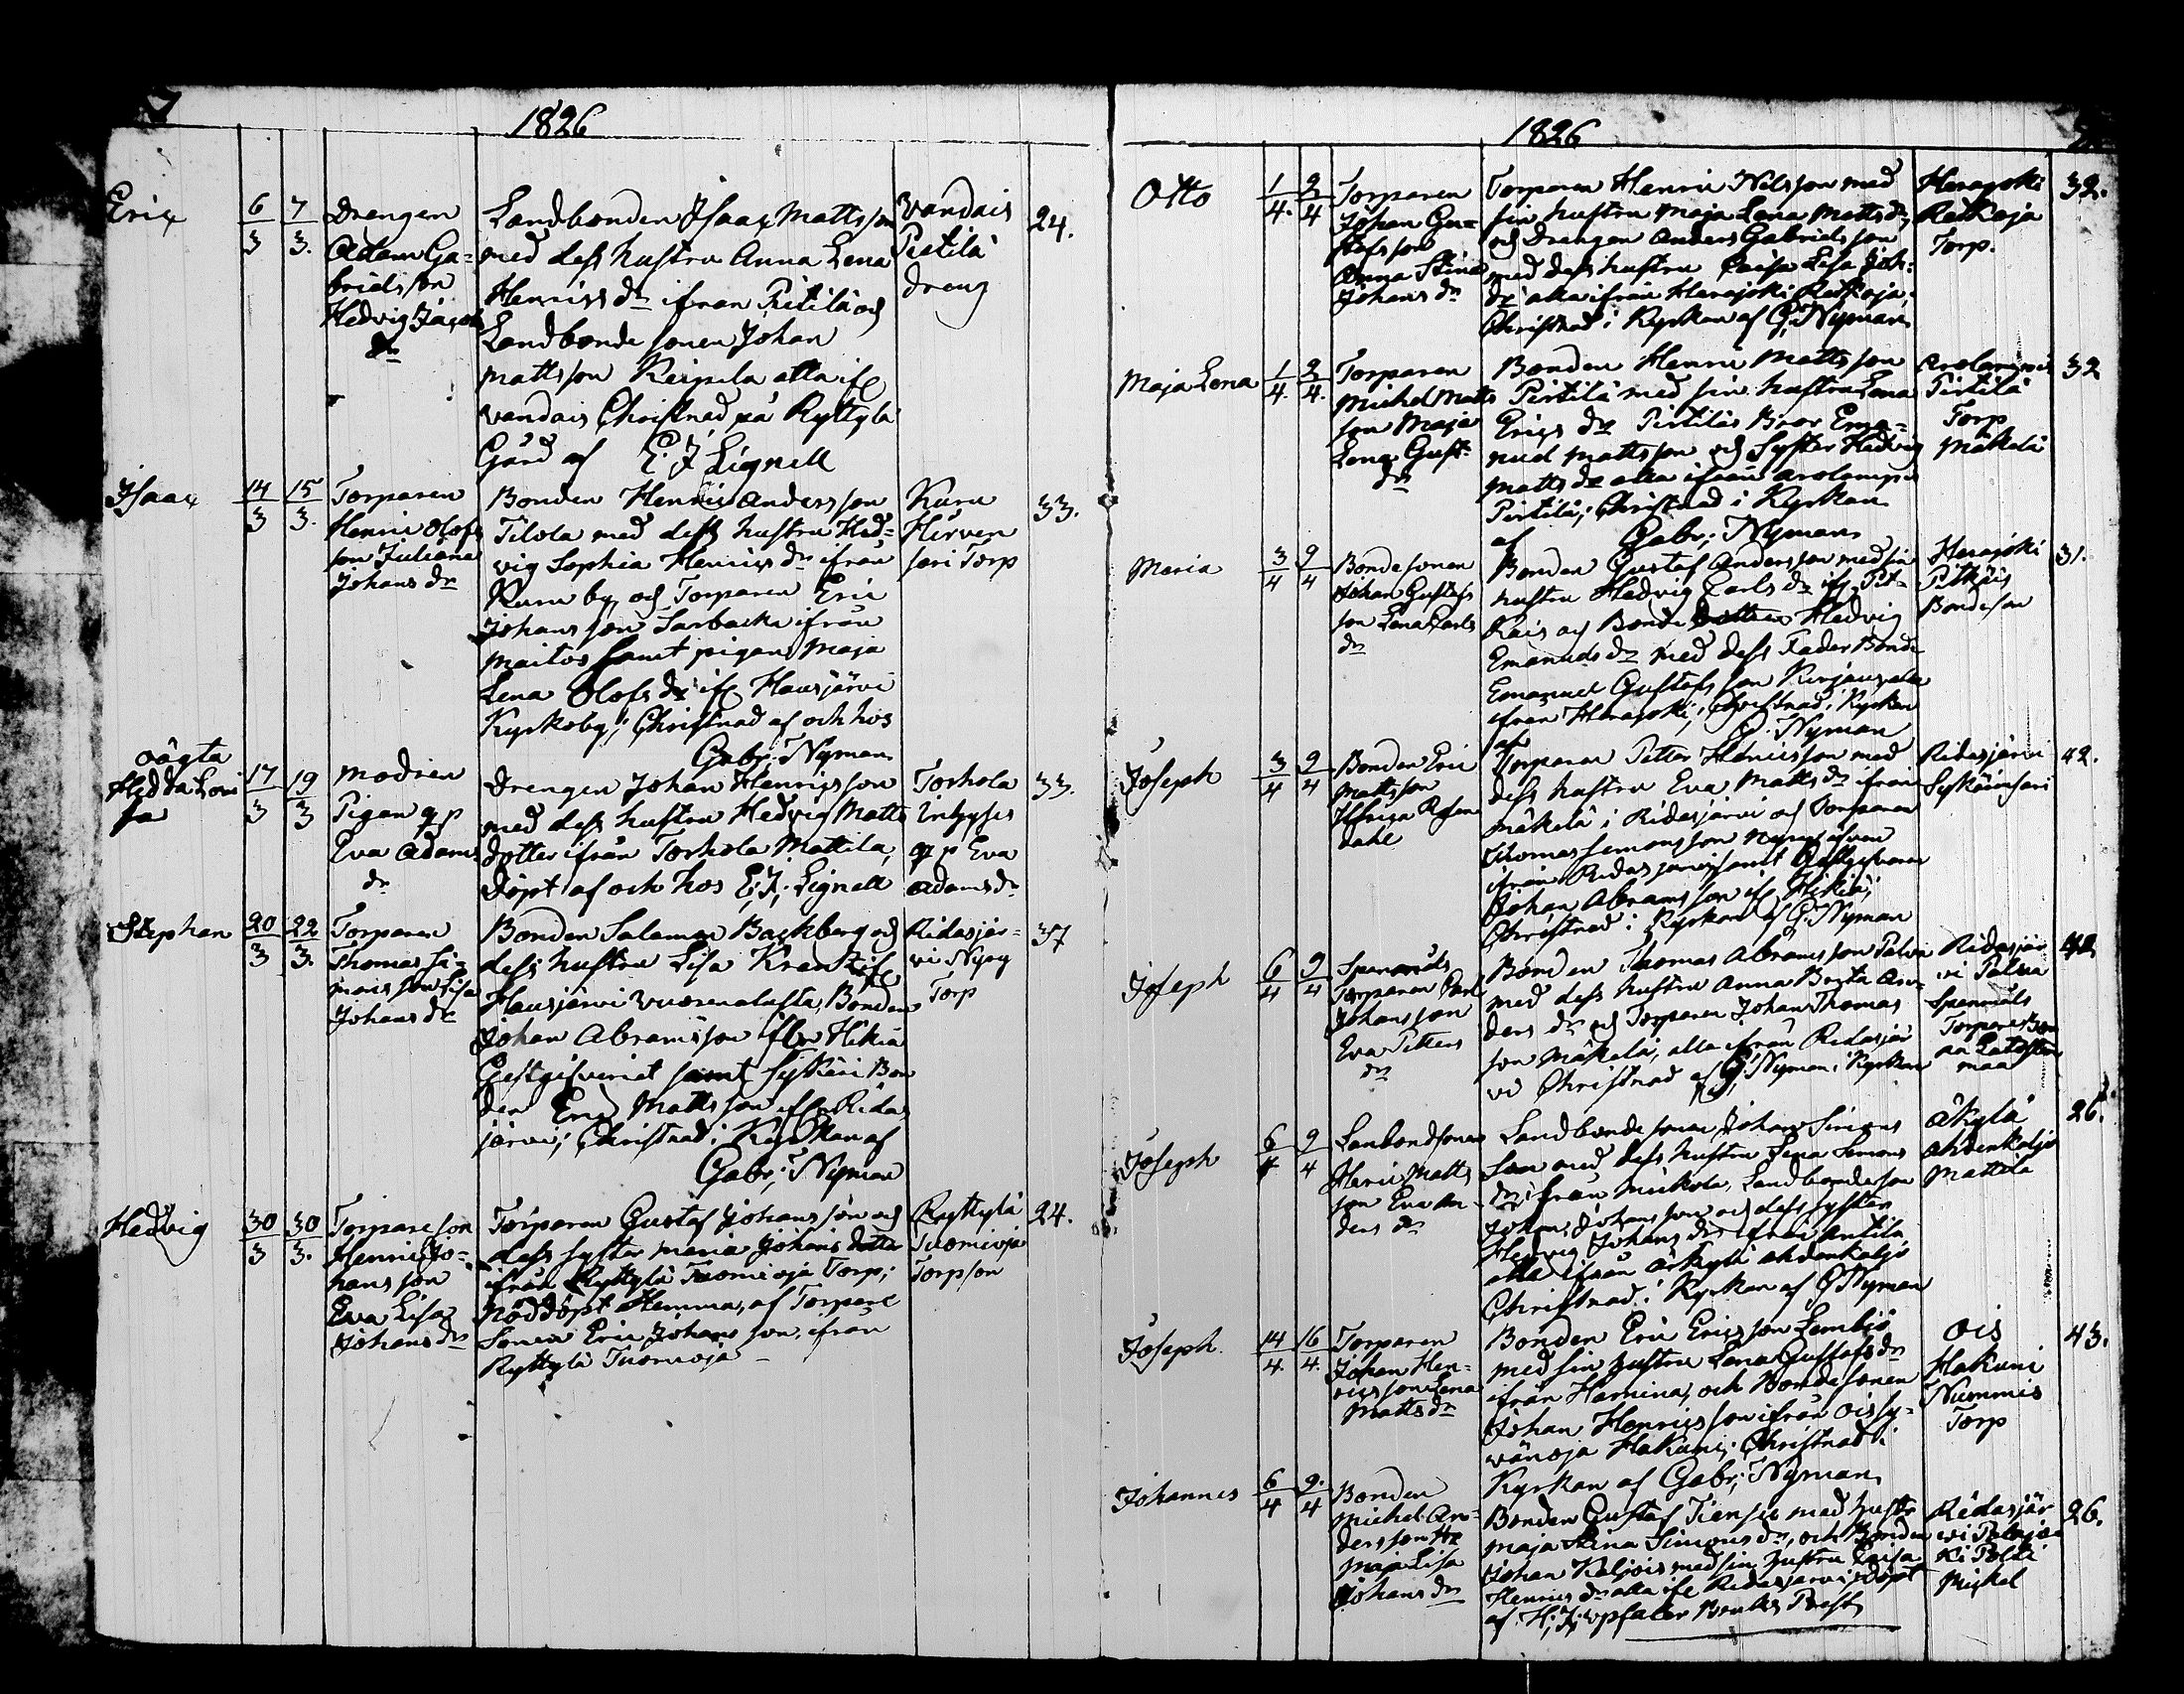 1826
Eric
6/3 7/3.
Drengen
Adam Ga=
brielsson
Hedvig Jacobs
dr
Landbonden Isaac Mattsson
med dess hustru Anna Lena
Henrics dr ifrån Pietilä och
Landbonde sonen Johan
Mattsson Keipila alla ifr
Vandais Christnad på Ryttylä
Gård af E. J. Lignell
Vandais
Pietilä
dreng
24.
Isaac
14/3 15/3.
Torparen
Henric Olofs
son Juliana
Johans dr
Bonden Henric Andersson
Tilola med dess hustru Hed=
vig Sophia Henrics dr ifrån
Kuru by och Torparen Eric
Johansson Sarbacka ifrån
Maitos samt pigan Maja
Lena Olofs dr ifr Hausjärvi
Kyrkoby; Christnad af och hos
Gabr; Nyman
Kuru
Hirven
sari Torp
33.
oägta
Hedda Lovi
sa
17/3 19/3
Modren
Pigan q p
Eva Adams
dr
Drengen Johan Henricsson
med dess hustru Hedvig Matts
dotter ifrån Torhola Mattila,
döpt af och hos E; J; Lignell
Torhola
Inhyses
q p Eva
Adams dr
33.
Stephan
20/3 22/3.
Torparen
Thomas Si=
monsson Lisa
Johans dr
Bonden Salomon Backberg och
dess hustru Lisa Krantz ifr
Hausjärvi Vuorenalusta, Bonden
Johan Abramsson ifrn Hikiä
Gestgifveriet samt Syskäri Bon
den Eric Mattsson ifrn Rida
järvi; Christnad i Kyrkan af
Gabr; Nyman
Ridasjär=
vi Nyyg
Torp
37
Hedvig
30/3 30/3.
Torpareson
Henric Jo=
hansson
Eva Lisa
Johans dr
Torparen Gustaf Johansson och
dess syster Maria Johans dotter
ifrån Ryttylä Tuomioja Torp;
Nöddöpt Hemma, af Torpare
Sonen Eric Johansson, ifrån
Ryttylä Tuomioja
Ryttylä
Tuomioja
Torpson
24.
1826
Otto
1/4. 2/4
Torparen
Johan Gu=
stafsson
Anna Stina
Johans dr
Torparen Henric Nilsson med
sin hustru Maja Lena Matts dr,
och Drengen Anders Gabrielsson
med dess hustru Caisa Lisa Joh:
dr alla ifrån Herajoki Retkoja;
Christnad i Kyrkan af G: Nyman
Herajoki
Retkoja
Torp.
32.
Maja Lena
1/4. 2/4.
Torparen
Michel Matts
son Maja
Lena Gust:
dr
Bonden Henric Mattsson
Pirtilä med sin hustru Lena
Erics dr Pirtiläs Bror Ema=
nuel Mattsson och Syster Hedvig
Matts dr alla ifrån Arolampi
Pirtilä; Christnad i Kyrkan
af Gabr; Nyman
Arolampi
Pirtilä
Torp
Mäkelä
32
Maria
3/4 9/4
Bondesonen
Johan Gustafs
son Lena Carls
dr
Bonden Gustaf Andersson med sin
hustru Hedvig Carls dr ifr Pit=
käis och Bonde dottren Hedvig
Emanuels dr med dess Fader Bonde
Emanuel Gustafsson Kirjausala
ifrån Herajoki; Christnad i Kyrkan
af G. Nyman
Herajoki
Pitkäis
Bondeson
31.
Joseph
3/4 9/4
Bonden Eric
Mattsson
Ulrica Rosen
dahl
Torparen Petter Henricsson med
dess hustru Eva Matts dr ifrån
Mäkelä i Ridasjärvi och Torparen
Thomas Simonsson
ifrån Ridasjärvi samt Gästgifvaren
Johan Abramsson ifr Hikiä;
Christnad i Kyrkan af G: Nyman
Ridasjärvi
Syskäinsari
42.
Joseph
6/4 9/4
Spanmåls
Torparen Carl
Johansson
Eva Petters
dr
Bonden Thomas Abramsson Palvia
med dess hustru Anna Brita An=
ders dr och Torparen Johan Thomas
son Mäkelä, alla ifrån Ridasjär
vi Christnad af G: Nyman i Kyrkan
Ridasjär
vi Palvia
Spanmåls
Torpare
maa
42.
Joseph
6/4 9/4
Lanbondsonen
Henric Matts
son Eva An
ders dr
Landbonde sonen Johan Simons
son med dess hustru Lena Simons
dr ifrån Mickola, Landbondeson
Johan Johansson och dess syster
Hedvig Johans dr ifrån Antila,
alla ifrån Äikylä Ahdenkaljo
Christnad i Kyrkan af G Nyman
Äikylä
Ahdenkaljo
Mattila
26.
Joseph.
14/4. 16/4.
Torparen
Johan Hen=
ricsson Lena
Matts dr
Bonden Eric Ericsson Lembiö
med sin hustru Lena Gustafs dr
ifrån Hamina, och Bondesonen
Johan Henricsson ifrån Ois sy=
vänoja Hakuni; Christnad i
Kyrkan af Gabr; Nyman
Ois
Hakuni
Nummis
Torp
43.
Johannes
6/4 9./4
Bonden
Michel An=
dersson Hu
Maja Lisa
Johans dr
Bonden Gustaf Tiensu med hustr
Maja Stina Simons dr, och Bonden
Johan Keljois med sin hustru Caisa
Henrics dr alla ifr Ridasjärvi, döpt
af H; J; Upfaler Bruks Prest
Ridasjär
vi Palojo
ki Polli
Michel
26.